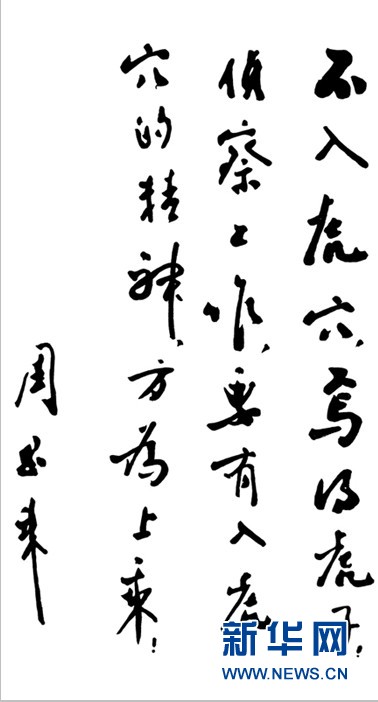 不入虎穴，焉得虎子！
侦察工作，要有入虎
穴的精神，方为上乘！
周恩来
新华网
WWW.NEWS.CN